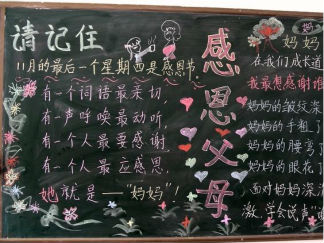 请记住
11月的最后一个星期四是感恩节
有一个词语最亲切,
有一声呼唤最动听,
有一个人最要感谢,
有一个人最应感恩,
她就是——"妈妈"!
感恩父母
妈妈
在我们成长道
我最想感谢谁
妈妈的皱纹深
妈妈的手粗了
妈妈的腰弯了
妈妈的眼花了
面对妈妈深深
激,学会说声"